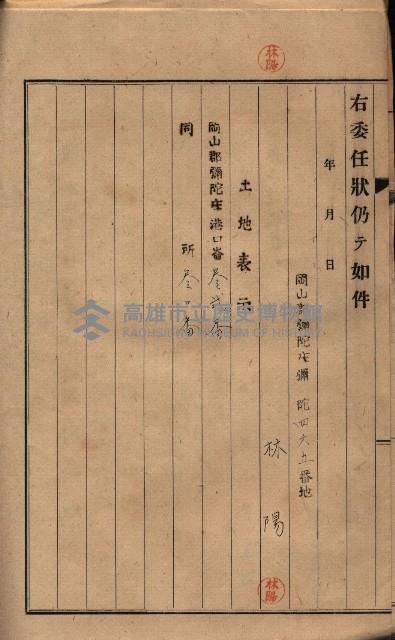 右委任狀仍テ如件
年　月　日
岡山郡彌陀庄彌陀四六五番地
林　陽
土地表示
岡山郡彌陀庄港口崙参弐番
同　所　参〇番
林陽
林陽
高雄市立歷史博物館
KAOHSIUNG MUSEUM OF HISTORY